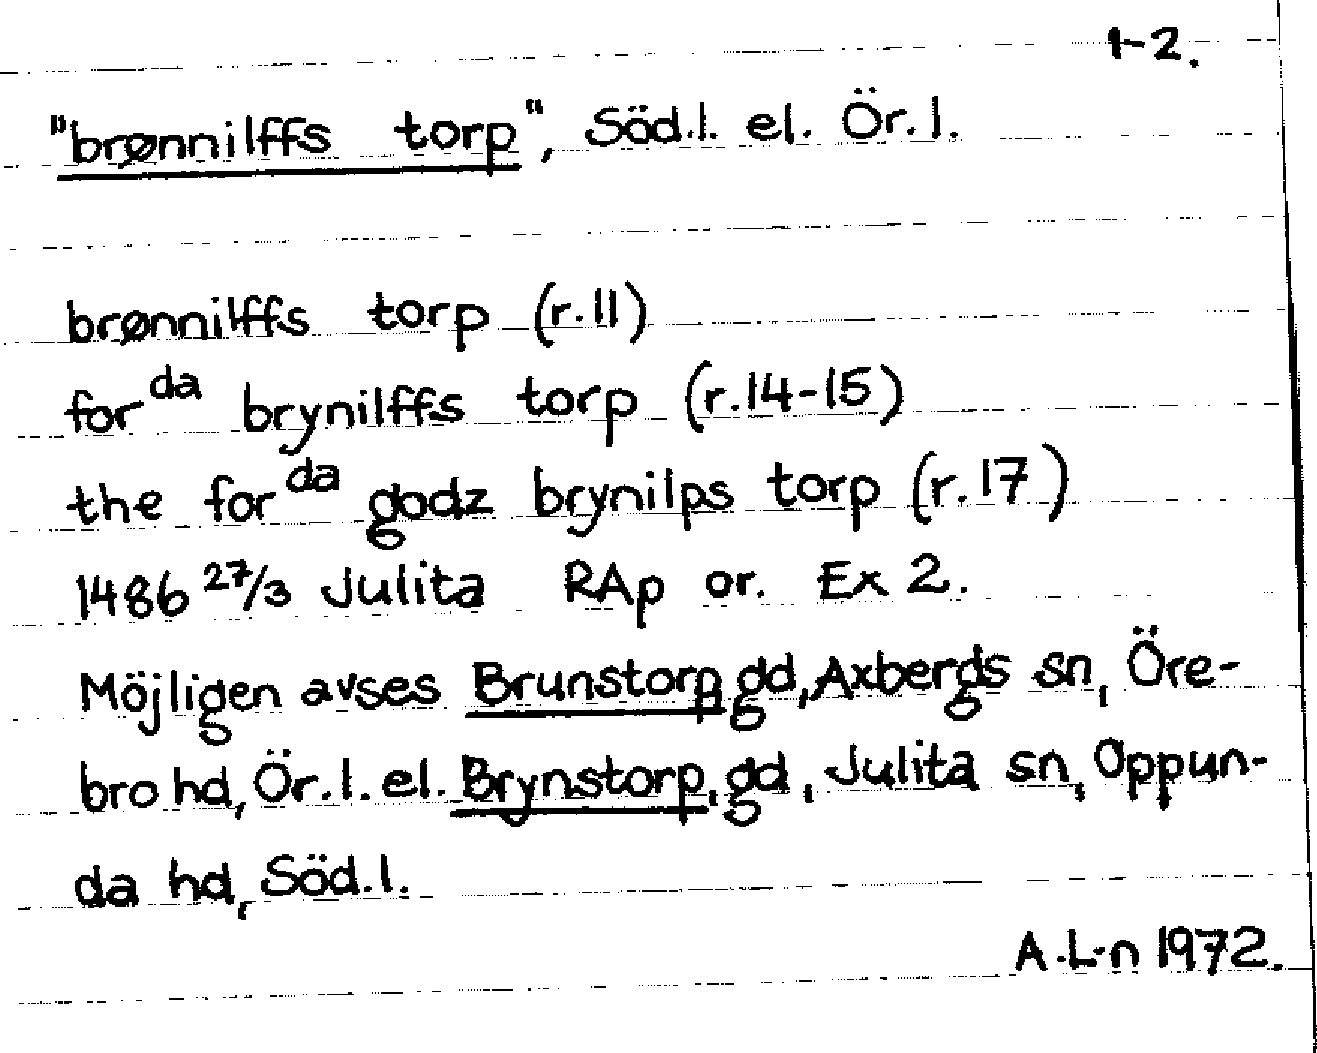 1-2.
"brønnilffs torp", Söd.l. el. Ör.l.
brønnilffs torp (r.11)
for da brynilffs torp (r.14-15)
the for da godz brynilps torp (r.17)
1486 27/3 Julita RAp or. Ex 2.
Möjligen avses Brunstorp gd, Axbergs sn, Öre-
bro hd, Ör.l. el. Brynstorp, gd, Julita sn, Oppun-
da hd, Söd.l.
A.L-n 1972.